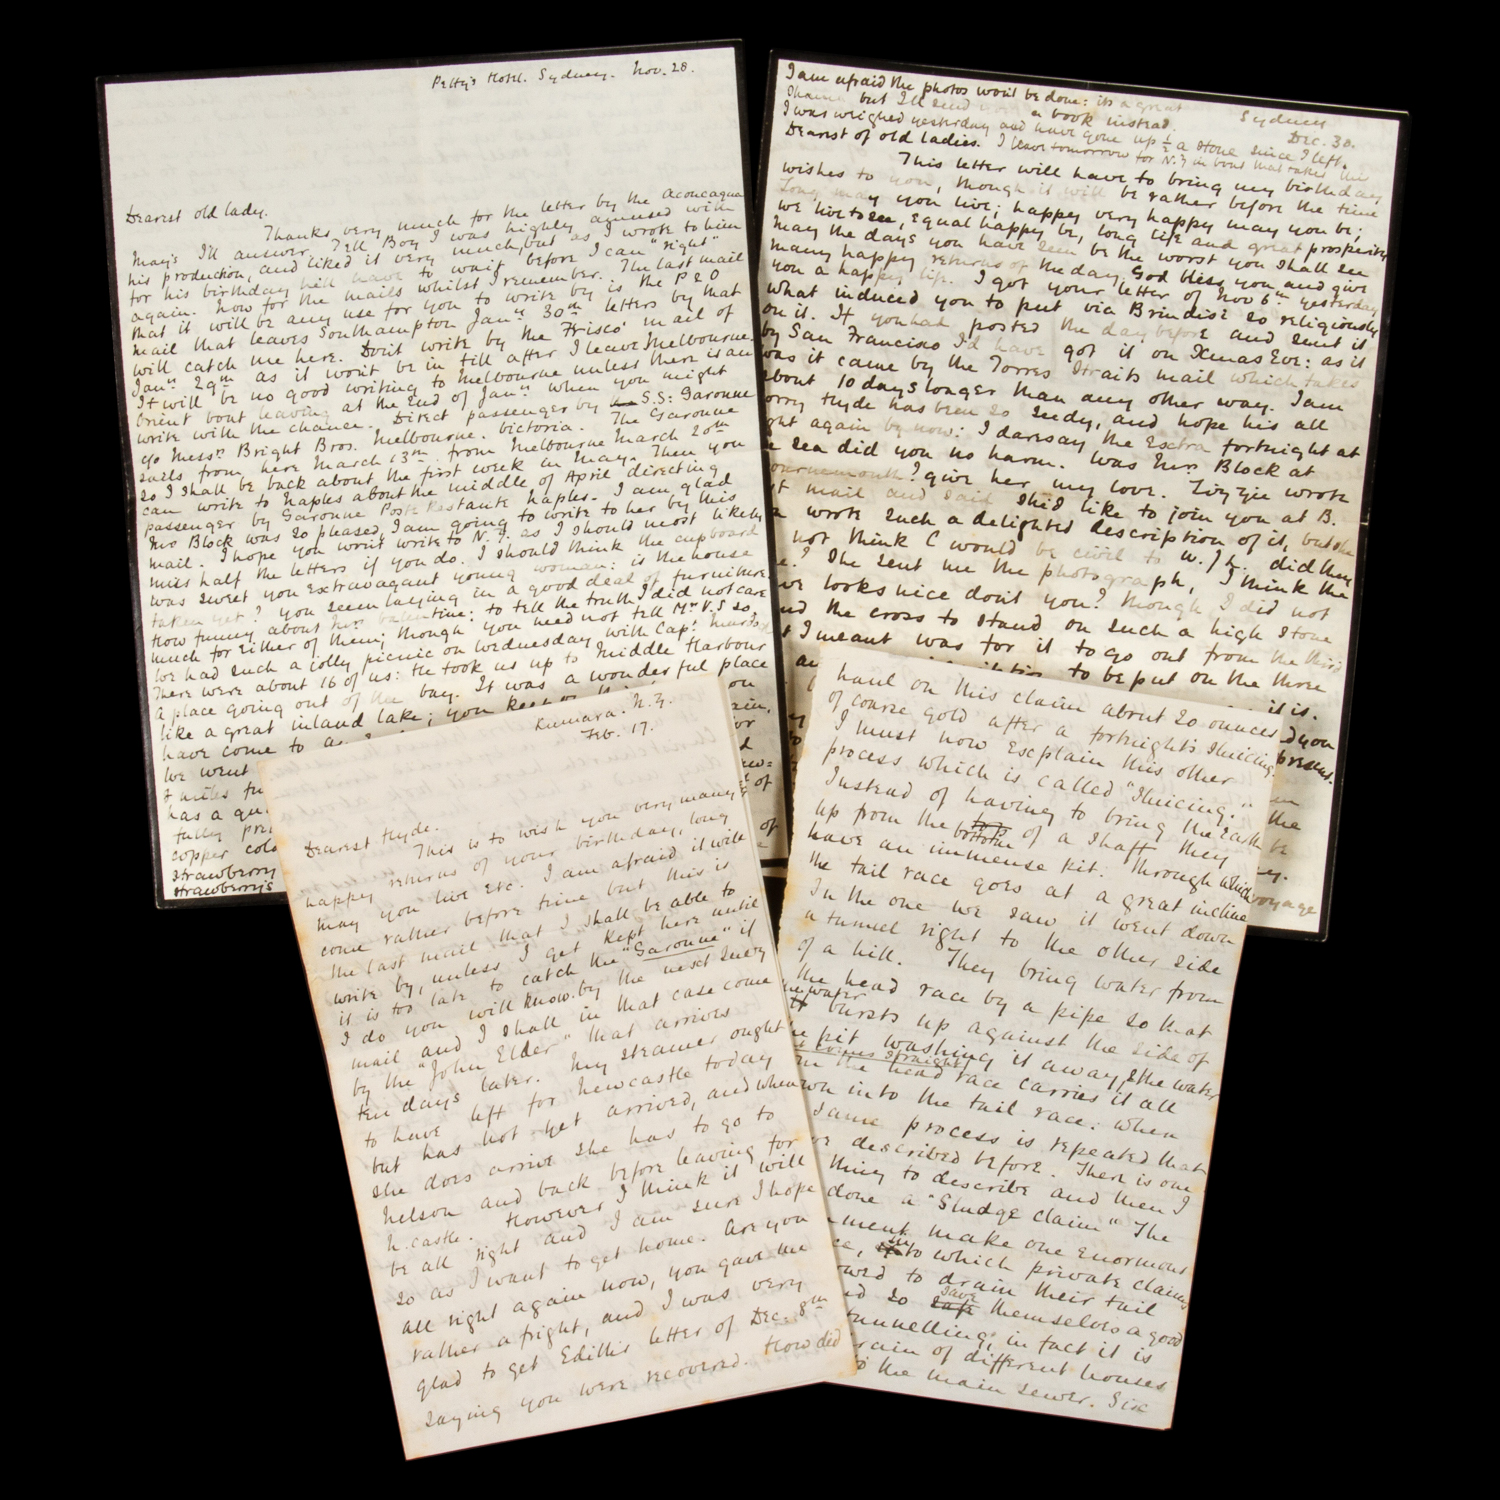 Petty's Hotel. Sydney. Nov. 28.
Dearest old lady.
Thanks very much for the letter by the Aconcagua
May's I'll answer. Tell Boy I was highly amused with
his production, and liked it very much, but as I wrote to him
for his birthday he'll have to wait before I can "right"
again. Now for the mails whilst I remember. The last mail
that it will be any use for you to write by is the P & O
mail that leaves Southampton Jany 30th letters by that
will catch me here. Don't write by the 'Frisco' mail of
Jany 29th as it won't be in till after I leave Melbourne.
It will be no good writing to Melbourne unless there is an
Orient boat leaving at the end of Jany when you might
write with the chance. Direct passenger by S.S: Garonne
c/o Messrs Bright Bros. Melbourne. Victoria. The Garonne
sails from here March 13th from Melbourne March 20th
so I shall be back about the first week in May. Then you
can write to Naples about the middle of April directing
passenger by Garonne Poste Restante Naples. I am glad
Mrs Block was so pleased, I am going to write to her by this
mail. I hope you won't write to N.Z. as I should most likely
miss half the letters if you do. I should think the cupboard
was sweet you extravagant young woman: is the house
taken yet? You seem laying in a good deal of furniture.
How funny about his valentine: to tell the truth I did not care
much for either of them; though you need not tell Mr V.S so.
We had such a jolly picnic on Wednesday with Capt
There were about 16 of us: He took us up to Middle Harbour
a place going out of the bay. It was a wonderful place
like a great inland lake; you keep on
have come to a
We went
miles
has a
fully
copper
strawberry
strawberrys
I am afraid the photos won't be done: its a great
shame but I'll send a book instead.
Sydney
Dec. 30.
I was weighed yesterday and have gone up ½ a stone since I left.
Dearest of old ladies. I leave tomorrow for N.Z in boat that takes this
This letter will have to bring my birthday
wishes to you, though it will be rather before the time
Long may you live; happy very happy may you be;
we live to see, equal happy be, long life and great prosperity
may the days you have seen be the worst you shall see
many happy returns of the day, God bless you and give
you a happy life. I got your letter of Nov 6th yesterday
what induced you to put via Brindisi so religiously
on it. If you had posted the day before and sent it
by San Francisco I'd have got it on Xmas Eve: as it
was it came by the Torres Straits mail which takes
about 10 days longer than any other way. I am
sorry Hyde has been so seedy, and hope his all
right again by now: I daresay the extra fortnight at
sea did you no harm. Was Mrs Block at
Bournemouth? give her my love. Lizzie wrote
mail and said she'd like to join you at B.
wrote such a delighted description of it, but she
not think C would be civil to W./h. did they
? She sent me the photograph, I think the
looks nice don't you? though I did not
the cross to stand on such a high stone
I meant was for it to go out from the third
to be put on the three
it is.
Kumara. N.Z.
Feb. 17.
Dearest Hyde.
This is to wish you very many
happy returns of your birthday, long
may you live etc. I am afraid it will
come rather before time but this is
the last mail that I shall be able to
write by, unless I get kept here until
it is too late to catch the "Garonne" if
I do you will know by the next Suez
mail and I shall in that case come
by the "John Elder" that arrives
ten days later. My steamer ought
to have left for Newcastle today
but has not yet arrived, and when
she does arrive she has to go to
Nelson and back before leaving for
N.castle. However I think it will
be all right and I am sure I hope
so as I want to get home. Are you
all right again now, you gave me
rather a fright, and I was very
glad to get Edith's letter of Dec. 8th
saying you were recovered. How did
haul on this claim about 20 ounces
of coarse gold after a fortnights sluicing.
I must now explain this other
process which is called "Sluicing."
Instead of having to bring the Earth
up from the bottom of a Shaft they
have an immense pit: through which
the tail race goes at a great incline
In the one we saw it went down
a tunnel right to the other side
of a hill. They bring water from
the head race by a pipe so that
the water bursts up against the side of
the pit washing it away, & the water
comes straight
the head race carries it all
down into the tail race: when
same process is repeated that
described before. There is one
thing to describe and then I
done a "Sludge claim" The
make one enormous
into which private claims
to drain their tail
so save themselves a good
tunnelling; in fact it is
drain of different houses
the main sewer. Six